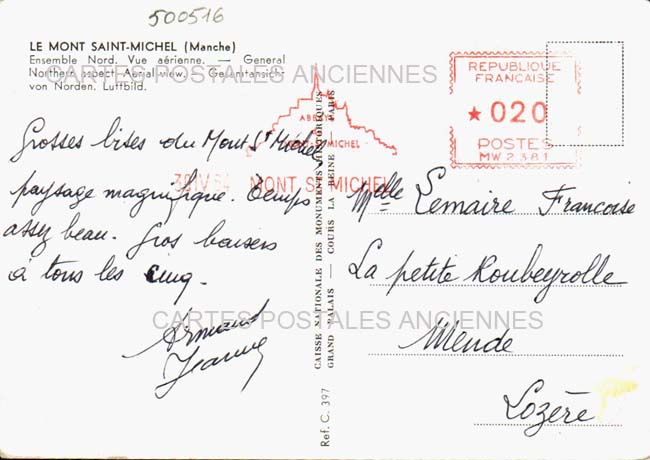 500516
LE MONT SAINT-MICHEL (Manche)
Ensemble Nord. Vue aérienne. — General
Northern aspect. Aerial view. — Gesamtansicht
von Norden. Luftbild.
CARTES POSTALES ANCIENNES
Grosses bises du Mont St Michel,
paysage magnifique. Temps
assez beau. Gros baisers
à tous les cinq.
Armand
Jeanne
ABBAYE
MONT-ST-MICHEL
MONT ST MICHEL
REPUBLIQUE
FRANCAISE
★ 020
POSTES
MW 2381
CAISSE NATIONALE DES MONUMENTS HISTORIQUES
GRAND PALAIS — COURS LA REINE — PARIS
Ref. C. 397
Melle Lemaire Francoise
La petite Roubeyrolle
Mende
Lozère
CARTES POSTALES ANCIENNES